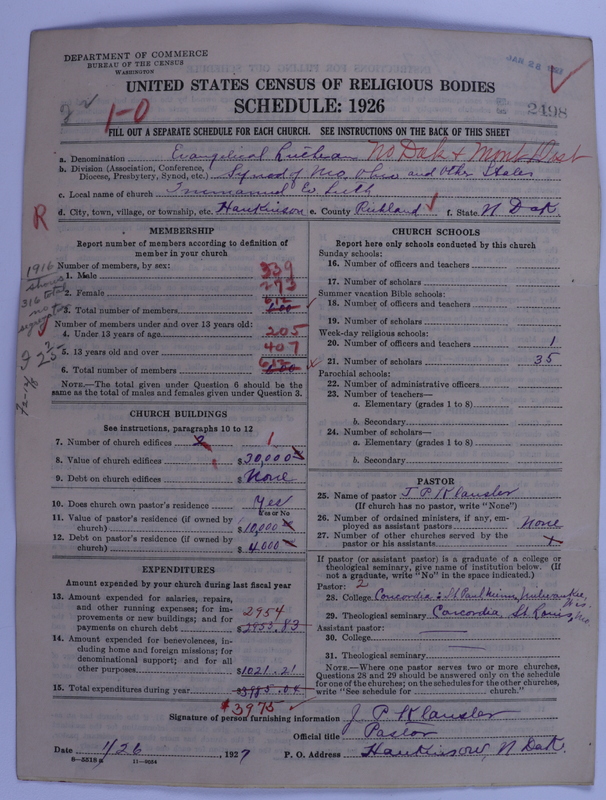 DEPARTMENT OF COMMERCE
BUREAU OF THE CENSUS
WASHINGTON
UNITED STATES CENSUS OF RELIGIOUS BODIES
SCHEDULE: 1926
1-0
2498
FILL OUT A SEPARATE SCHEDULE FOR EACH CHURCH. SEE INSTRUCTIONS ON THE BACK OF THIS SHEET
a. Denomination Evangelical Lutheran No Dak & Mont Dist
b. Division (Association, Conference, Diocese, Presbytery, Synod, etc.) Synod of Mo, Ohio and other States
c. Local name of church Immanuel Ev Luth
d. City, town, village, or township, etc. Hankinson e. County Richland f. State N Dak.
R
MEMBERSHIP
Report number of members according to definition of
member in your church
Number of members, by sex:
1. Male 339
2. Female 273
3. Total number of members 612
Number of members under and over 13 years old:
4. Under 13 years of age 205
5. 13 years old and over 407
6. Total number of members 612
NOTE.—The total given under Question 6 should be the
same as the total of males and females given under Question 3.
1916
shows
316 total
no
CHURCH BUILDINGS
See instructions, paragraphs 10 to 12
7. Number of church edifices 1
8. Value of church edifices $30,000
9. Debt on church edifices $None
10. Does church own pastor's residence Yes
Yes or No
11. Value of pastor's residence (if owned by
church) $10,000
12. Debt on pastor's residence (if owned by
church) $4,000
EXPENDITURES
Amount expended by your church during last fiscal year
13. Amount expended for salaries, repairs,
and other running expenses; for im-
provements or new buildings; and for
payments on church debt 2954 $2953.83
14. Amount expended for benevolences, in-
cluding home and foreign missions; for
denominational support; and for all
other purposes $1021.21
15. Total expenditures during year 3975.04
$3975
CHURCH SCHOOLS
Report here only schools conducted by this church
Sunday schools:
16. Number of officers and teachers
17. Number of scholars
Summer vacation Bible schools:
18. Number of officers and teachers
19. Number of scholars
Week-day religious schools:
20. Number of officers and teachers 1
21. Number of scholars 35
Parochial schools:
22. Number of administrative officers
23. Number of teachers—
a. Elementary (grades 1 to 8)
b. Secondary
24. Number of scholars—
a. Elementary (grades 1 to 8)
b. Secondary
PASTOR
25. Name of pastor J P Klausler
(If church has no pastor, write "None")
26. Number of ordained ministers, if any, em-
ployed as assistant pastors None
27. Number of other churches served by the
pastor or his assistants
If pastor (or assistant pastor) is a graduate of a college or
theological seminary, give name of institution below. (If
not a graduate, write "No" in the space indicated.)
Pastor: 2
28. College Concordia: St Paul Minn, Milwaukee, Wis.
29. Theological seminary Concordia, St Louis, Mo.
Assistant pastor:
30. College
31. Theological seminary
NOTE.—Where one pastor serves two or more churches,
Questions 28 and 29 should be answered only on the schedule
for one of the churches; on the schedules for the other churches,
write "See schedule for church."
Signature of person furnishing information J. P Klausler
Official title Pastor
Date 1/26, 1927 P. O. Address Hankinson, N Dak.
8—5518a 11—9024